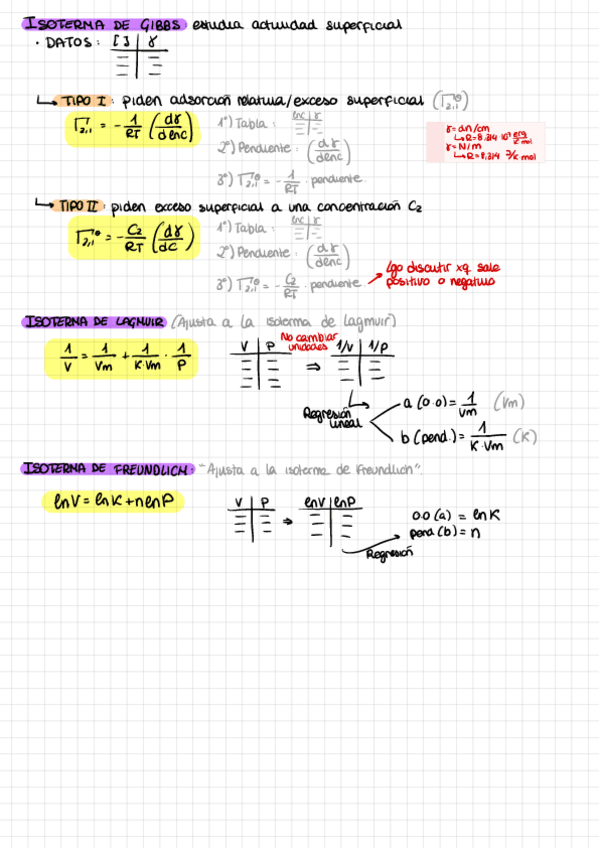 ISOTERMA DE GIBBS: estudia actividad superficial
· DATOS: [ ] γ
↳ TIPO I: piden adsorción relativa/exceso superficial (Γ₂,₁⁽¹⁾)
Γ₂,₁ = - 1/RT (dγ/dlnc)
1º) Tabla: lnc | γ
2º) Pendiente: (dγ/dlnc)
3º) Γ₂,₁⁽¹⁾ = - 1/RT · pendiente.
γ = dn/cm
↳ R = 8,314 · 10⁷ erg/K mol
γ = N/m
↳ R = 8,314 J/K mol
↳ TIPO II: piden exceso superficial a una concentración C₂
Γ₂,₁⁽¹⁾ = - C₂/RT (dγ/dC)
1º) Tabla: lnc | γ
2º) Pendiente: (dγ/dlnc)
3º) Γ₂,₁⁽¹⁾ = - C₂/RT · pendiente.
lgo discutir xq sale
positivo o negativo
ISOTERMA DE LAGMUIR (Ajusta a la isoterma de lagmuir)
1/V = 1/Vm + 1/K·Vm · 1/P
V | P
No cambiar
unidades
⇒ 1/V | 1/P
Regresión
lineal
a (0.0) = 1/Vm (Vm)
b (pend.) = 1/K·Vm (K)
ISOTERMA DE FREUNDLICH: "Ajusta a la isoterma de Freundlich".
lnV = lnK + nlnP
V | P ⇒ lnV | lnP
Regresión
0.0 (a) = lnK
pend (b) = n